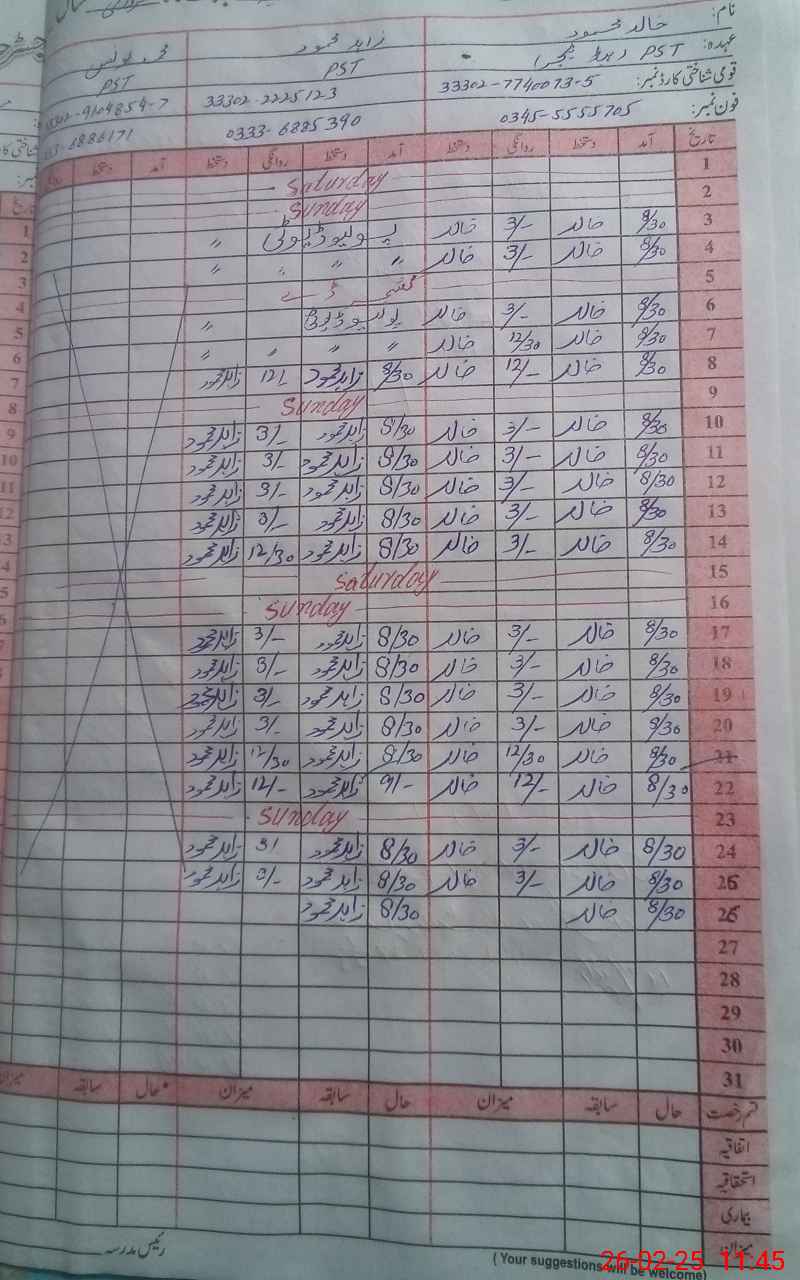 نام: خالد محمود زاہد محمود محمد یونس
عہدہ: PST (ہیڈ ٹیچر) PST PST
قومی شناختی کارڈ نمبر: 33302-7740073-5 33302-2225123
فون نمبر: 0345-5555705 0333-6885390 6886171
تاریخ آمد دستخط روانگی دستخط آمد دستخط روانگی دستخط آمد دستخط
1 Saturday
2 Sunday
3 8/30 خالد 3/- خالد پولیو ڈیوٹی "
4 8/30 خالد 3/- خالد " " " "
5 ڈے
6 8/30 خالد 3/- خالد پولیو ڈیوٹی "
7 8/30 خالد 12/30 خالد " " " "
8 8/30 خالد 12/- خالد 8/30 زاہد محمود 12/- زاہد محمود
9 Sunday
10 8/30 خالد 3/- خالد 8/30 زاہد محمود 3/- زاہد محمود
11 8/30 خالد 3/- خالد 8/30 زاہد محمود 3/- زاہد محمود
12 8/30 خالد 3/- خالد 8/30 زاہد محمود 3/- زاہد محمود
13 8/30 خالد 3/- خالد 8/30 زاہد محمود 3/- زاہد محمود
14 8/30 خالد 3/- خالد 8/30 زاہد محمود 12/30 زاہد محمود
15 Saturday
16 Sunday
17 8/30 خالد 3/- خالد 8/30 زاہد محمود 3/- زاہد محمود
18 8/30 خالد 3/- خالد 8/30 زاہد محمود 3/- زاہد محمود
19 8/30 خالد 3/- خالد 8/30 زاہد محمود 3/- زاہد محمود
20 8/30 خالد 3/- خالد 8/30 زاہد محمود 3/- زاہد محمود
21 8/30 خالد 12/30 خالد 8/30 زاہد محمود 12/30 زاہد محمود
22 8/30 خالد 12/- خالد 9/- زاہد محمود 12/- زاہد محمود
23 Sunday
24 8/30 خالد 3/- خالد 8/30 زاہد محمود 3/ زاہد محمود
25 8/30 خالد 3/- خالد 8/30 زاہد محمود 3/- زاہد محمود
26 8/30 خالد 8/30 زاہد محمود
27
28
29
30
31
قسم رخصت حال سابقہ میزان حال سابقہ میزان حال سابقہ میزان
اتفاقیہ
استحقاقیہ
بیماری
میزان
رئیس مدرسہ
( Your suggestions will be welcome)
26-02-25 11:45